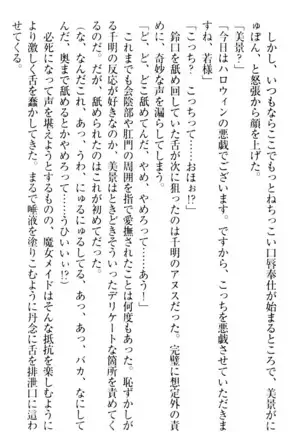 しかし、いつもならここでもっとねちっこい口唇奉仕が始まるところで、美景がに
ゅぽん、と怒張から顔を上げた。
「美景?」
「今日はハロウィンの悪戯でございます。ですから、こっちを悪戯させていただきま
すね、若様」
「こっち? こっちって……おほぉ!?」
鈴口を舐め回していた舌が次に狙ったのは千明のアヌスだった。完璧に想定外の責
めに、奇妙な声が漏らしてしまう。
「ど、どこ舐めてんだ、やめ、やめろって……あう!」
これまでも会陰部や肛門の周囲を指で愛撫されたことは何度もあった。恥ずかしが
る千明の反応が好きなのか、美景はときどきそういったデリケートな箇所を責めてく
るのだ。だが、だが、舐められたのはこれが初めてだった。
(な、なんだこれ、あっ、うわ、にゅるにゅるしてる、あっ、あっ、バカ、なにして
んだ、奥まで舐めるとかやめろって……うひいいぃ!?)
必死になって声を堪えようとするものの、魔女メイドはそんな抵抗を楽しむように
より激しく舌を蠢かしてきた。まるで唾液を塗りこむように丹念に舌を排泄口に這わ
せてくる。